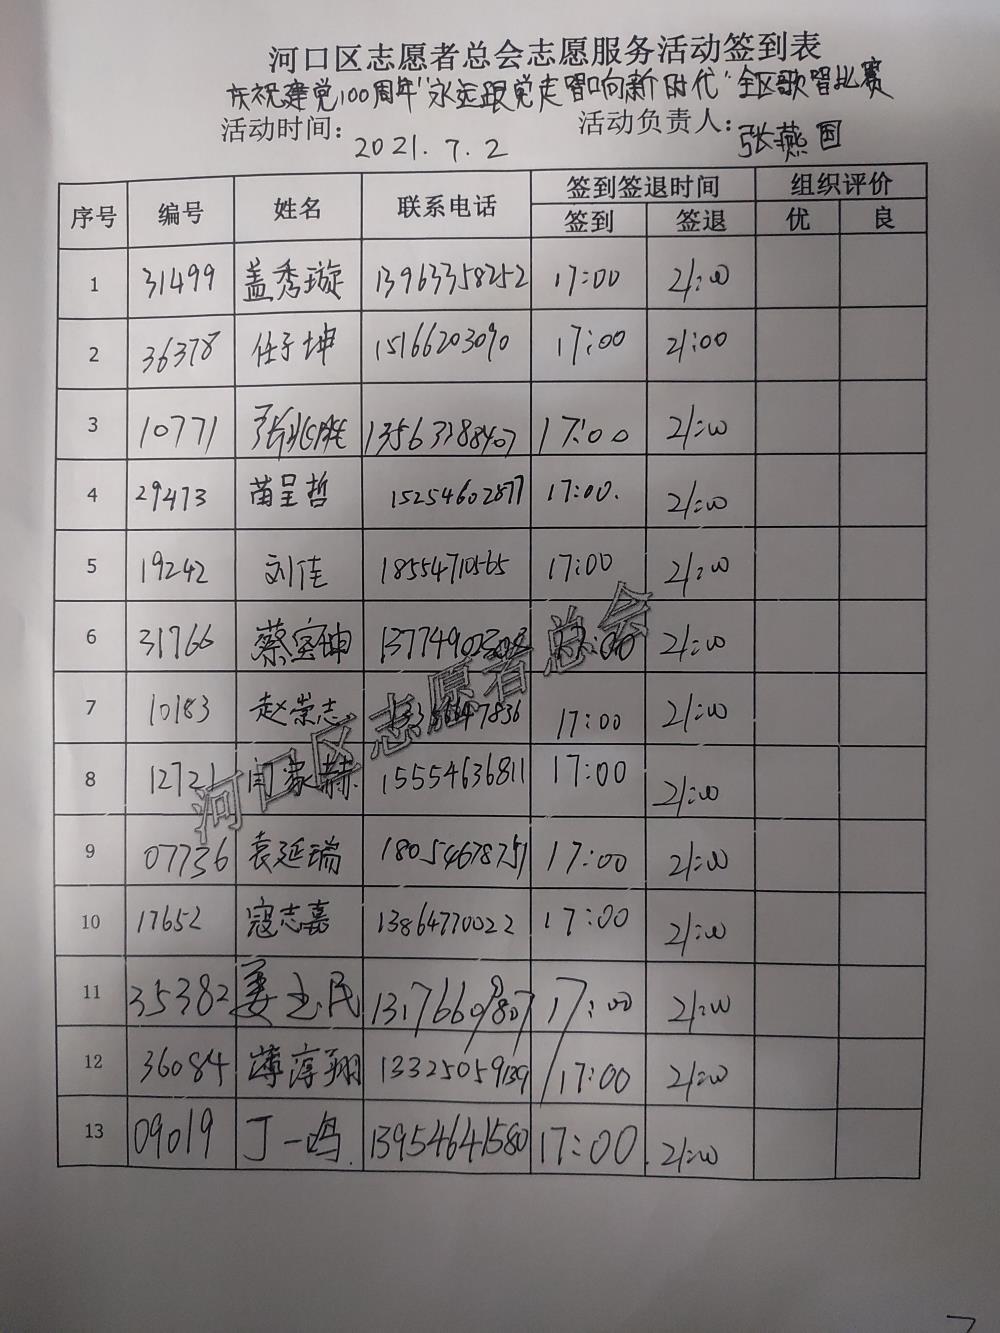 河口区志愿者总会志愿服务活动签到表
庆祝建党100周年"永远跟党走 唱响新时代"全区歌唱比赛
活动时间： 2021.7.2 活动负责人：张燕国
序号 编号 姓名 联系电话 签到签退时间 组织评价
签到 签退 优 良
1 31499 盖秀璇 13963358252 17:00 21:00
2 36378 任子坤 15166203090 17:00 21:00
3 10771 张兆胜 13563388407 17:00 21:00
4 29473 苗呈哲 15254602877 17:00. 21:00
5 19242 刘佳 18554710565 17:00 21:00
6 31766 蔡宝坤 17:00 21:00
7 10183 赵崇志 17:00 21:00
8 12721 闫家赫 15554636811 17:00 21:00
9 07736 袁延瑞 18054678751 17:00 21:00
10 17652 寇志嘉 13864770022 17:00 21:00
11 35382 姜玉民 17:00 21:00
12 36084 薄淳翔 13325059139 17:00 21:00
13 09019 丁一鸣. 13954641580 17:00. 21:00
河口区志愿者总会